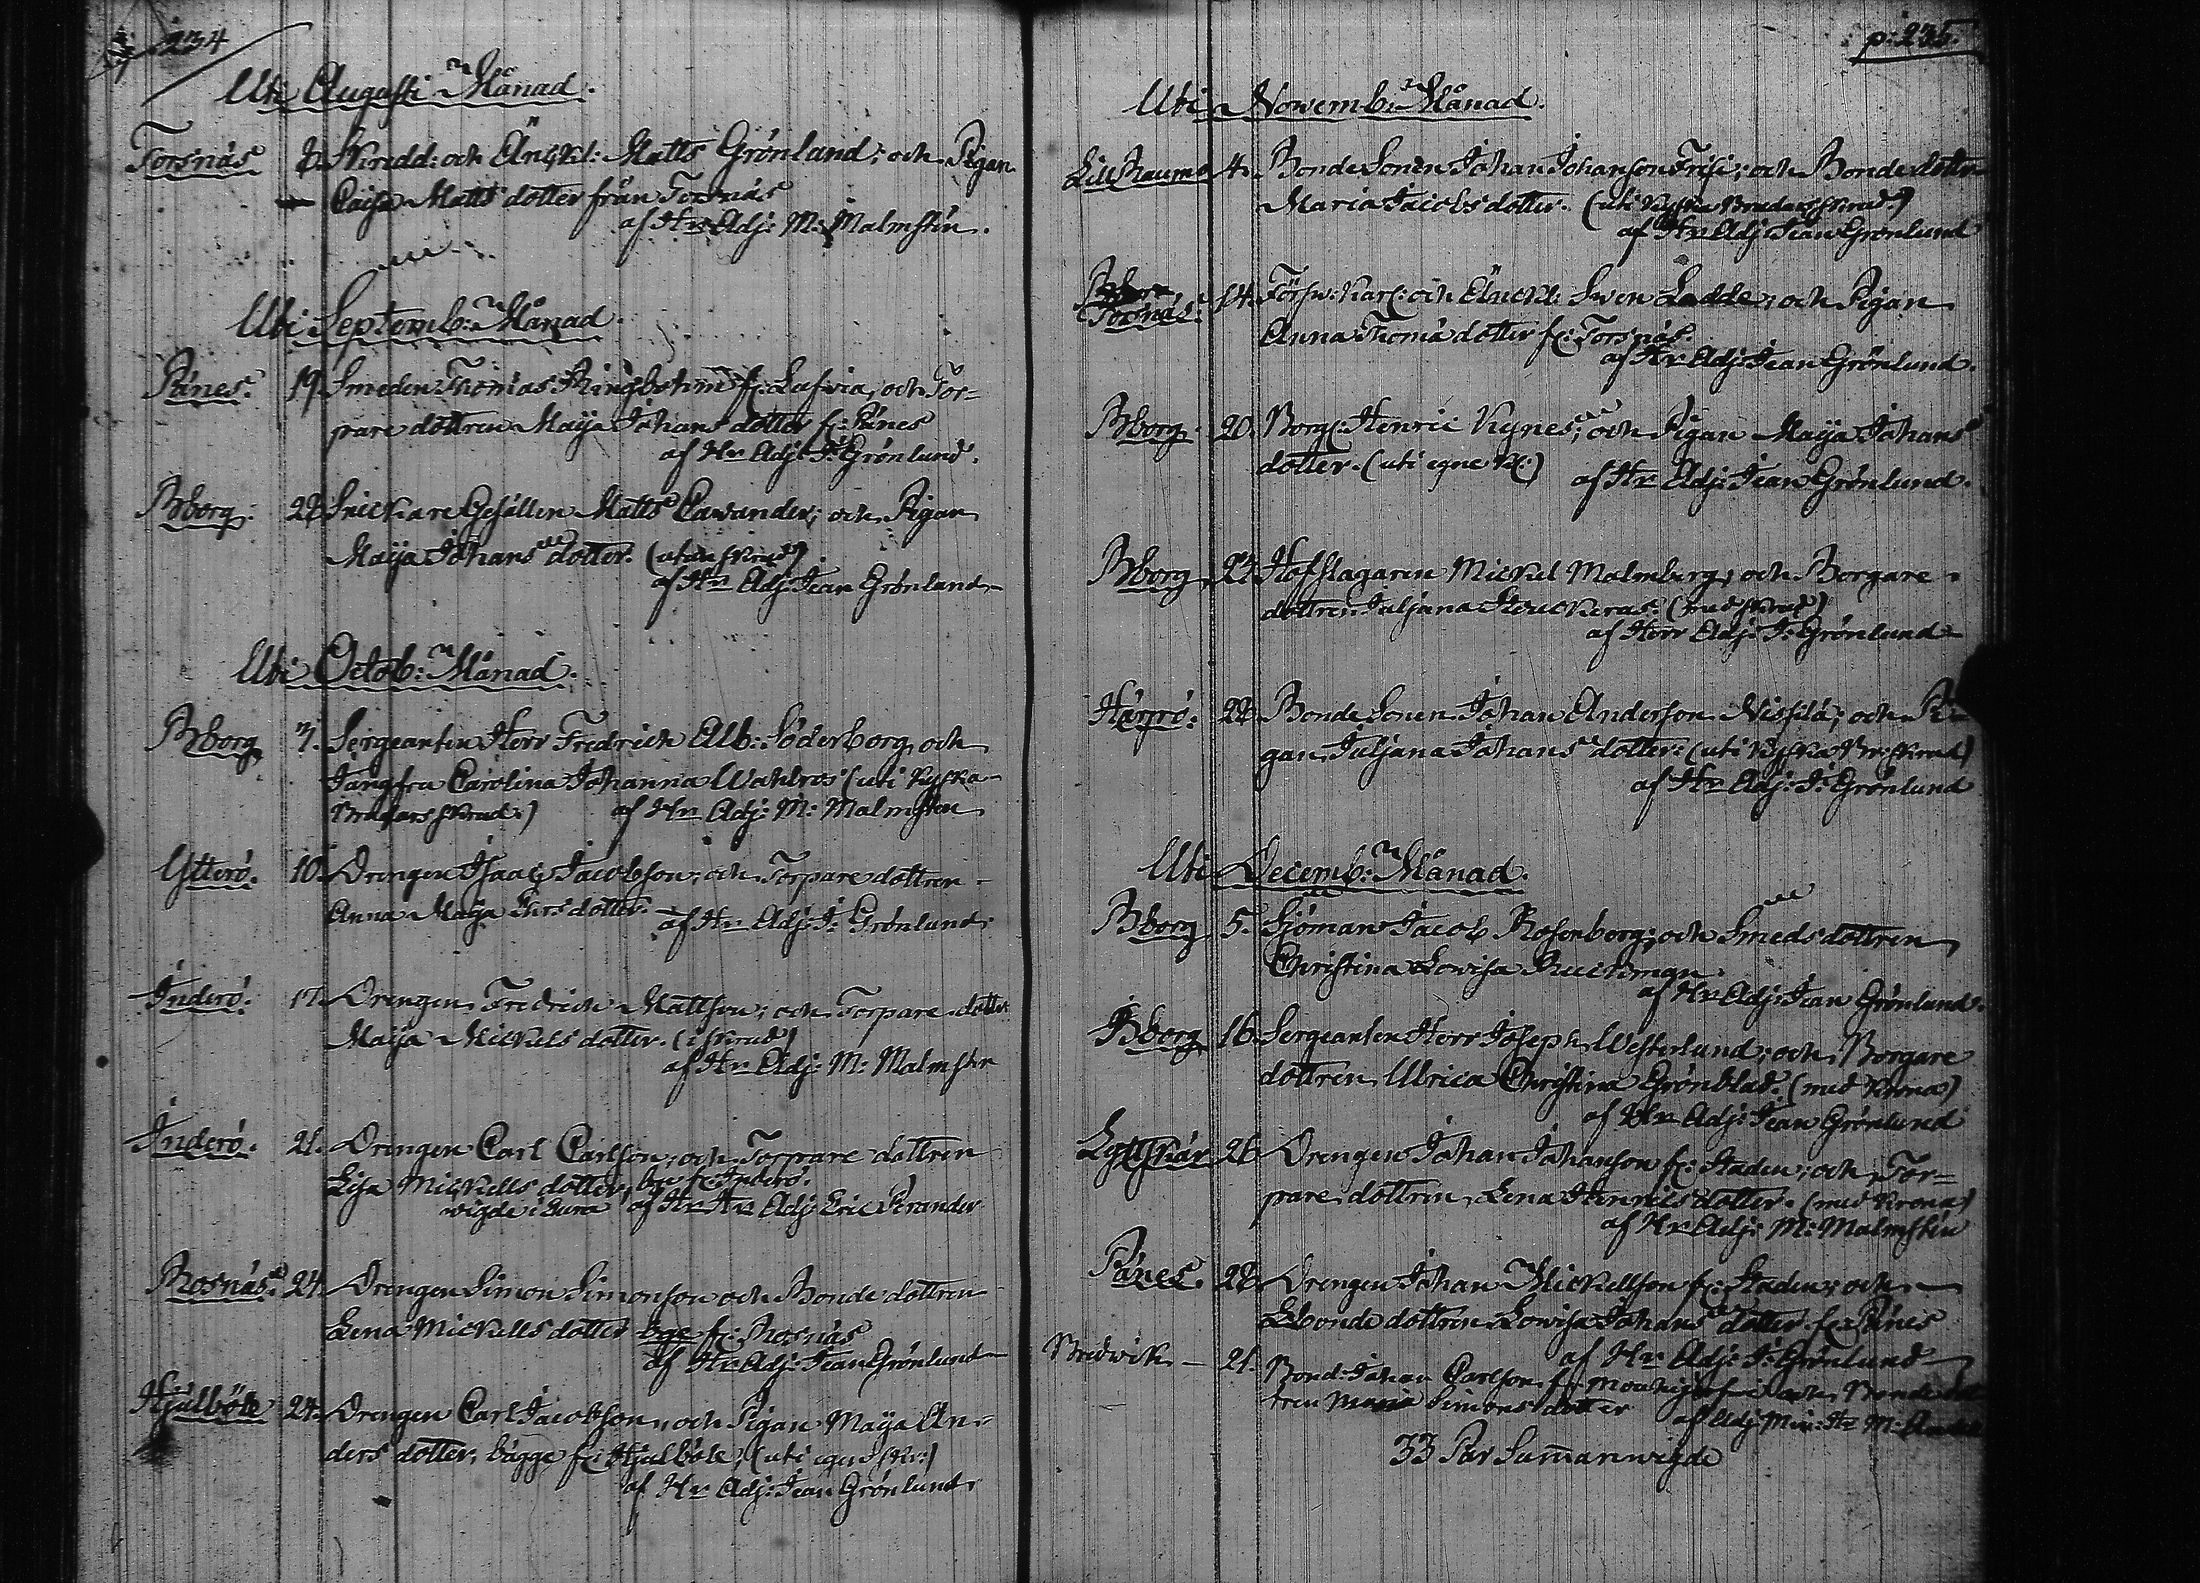 234
Uti Augusti Månad.
Torsnäs 7. Skredd: och Änckl: Matts Grönlund; och Pigan
Caisa Matts dotter från Torsnäs
af Hr Adj: M: Malmstén.
Uti Septemb: Månad.
Pänes. 19. Smeden Thomas Ringbohm fr: Lafvia, och Tor-
pare dottren Maija Johans dotter fr: Pänes
af Hr Adj: J: Grönlund.
Bborg. 28. Snickare Gesällen Matts Cavander; och Pigan
Maija Johans dotter. (utan skrud)
af Hr Adj: Jean Grönlund
Uti Octob: Månad.
Bborg 7. Sergeanten Herr Fredrich Alb: Söderborg, och
Jungfru Carolina Johanna Wahlros (uti kyska
Brudarskrud:) af Hr Adj: M: Malmsten
Ytterö. 10. Drengen Isaac Jacobson, och Torpare dottren
Anna Maija Ehrs dotter. af Hr Adj: J: Grönlund.
Inderö. 17. Drengen Fredrich Mattson; och Torpare dotter
Maija Mickels dotter. (i skrud)
af Hr Adj: M: Malmsten
Inderö. 21. Drengen Carl Carlson, och Torpare dottren
Lisa Mickells dotter, bge fr: Inderö.
wigde i Eura af Hr Hr Adj: Eric Strander
Rosnäs. 24. Drengen Simon Simonson och Bonde dottren
Lena Mickells dotter bge fr: Rosnäs
af Hr Adj: Jean Grönlund
Hjulböle 24. Drengen Carl Jacobson, och Pigan Maija An-
ders dotter, bägge fr: Hjulböle, (uti egen skr:)
af Hr Adj: Jean Grönlund
p: 235.
Uti Novemb: Månad.
Lill Raumo 4. Bonde Sonen Johan Johanson Frisi; och Bonde dottr
Maria Jacobs dotter. (uti kyska Brudarskrud)
af Hr Adj: Jean Grönlund
Torsnäs. 14. Försw: Karl: och Änckl: Swen Ladde; och Pigan
Anna Thomä dotter fr: Torsnäs.
af Hr Adj: Jean Grönlund.
Bborg 20. Borg: Henric Kynes; och Pigan Maija Johans
dotter. (uti egne Kl:)
af Hr Adj: Jean Grönlund.
Bborg 22. Hofslagaren Mickel Malmberg; och Borgare
dottren Juljana (med skrud)
af Herr Adj: J: Grönlund
22. Bonde Sonen Johan Anderson Nissilä; och Pi-
gan Juljana Johans dotter. (uti kyska Br: skrud)
af Hr Adj: J: Grönlund
Uti Decemb: Månad.
Bborg 5. Sjöman Jacob Rosenborg; och Smeds dottren
Christina Lovisa
af Hr Adj: Jean Grönlund.
Bborg 16. Sergeanten Herr Joseph Westerlund; och Borgare
dottren Ulrica Christina Grönblad. (med Krona)
af Hr Adj: Jean Grönlund
Lyttskär 26. Drengen Johan Johanson fr: Staden; och Tor-
pare dottren Lena Henrics dotter. (med Krona)
af Hr Adj: M: Malmstén
Pänes. 28. Drengen Johan Mickellson fr: Staden; och
Bonde dottren Lovisa Johans dotter fr: Pänes
af Hr Adj: J: Grönlund
Bredwik 21. Bond: Johan Carlson fr: och Bonde dot
tren Maria Simons dotter af Adj: Min: Hr M:
33 Par Sammanwigde